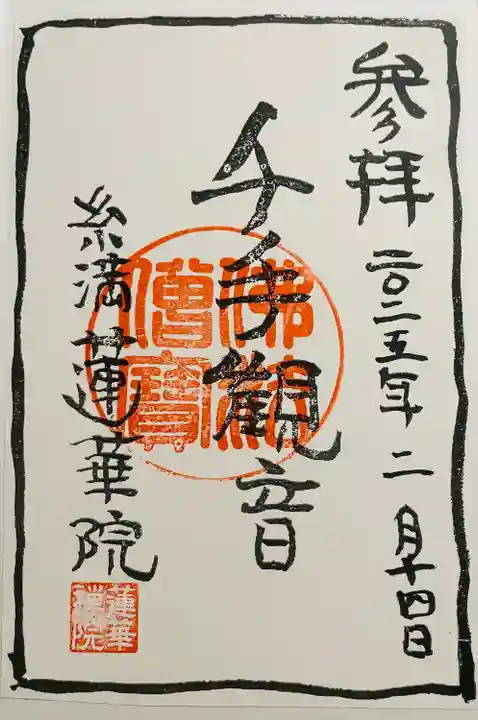 参拝 二〇二五年 二月十四日
千手觀音
糸満蓮華院
佛法
僧寶
蓮華
禅院